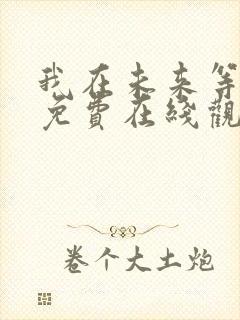 我在未来等
免費在綫觀
卷个大土炮